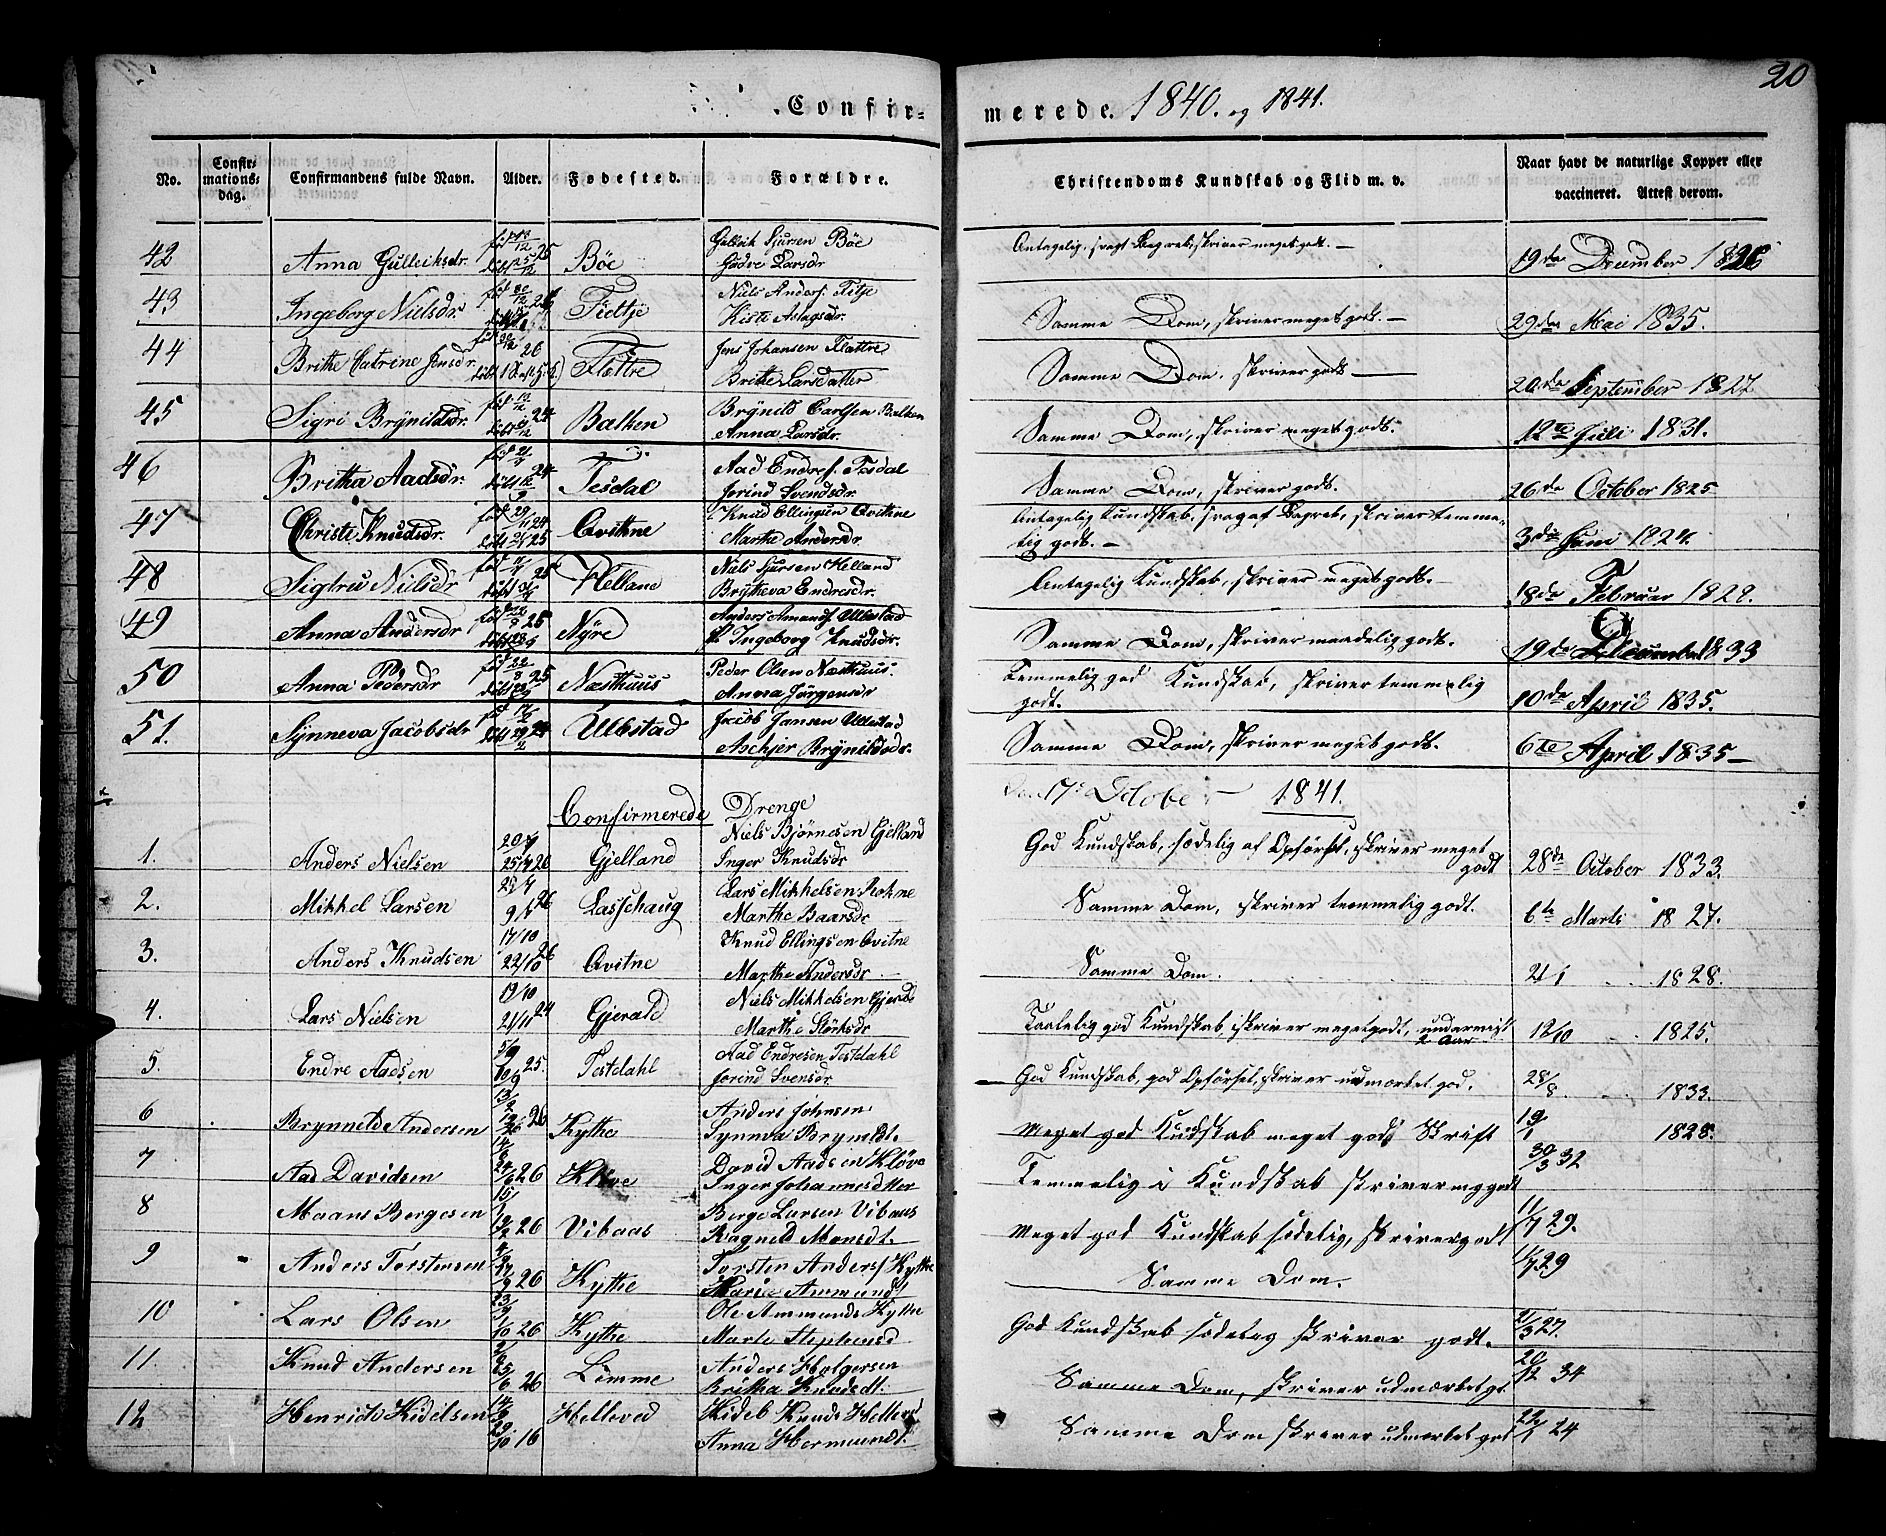 20
Confirmerede. 1840. og 1841.
No. Confirmationsdag. Confirmandens fulde Navn. Alder. Fødested. Forældre. Christendoms Kundskab og Flid m. v. Naar havt de naturlige Kopper eller vaccineret. Attest derom.
42 Anna Gulleiksdr. Bøe Gulleik Sjursen Bøe
Larsdr Antagelig, skriver meget godt. 19de December
43 Ingeborg Nielsdr. Niels Anders. Fitje
Samme Dom, skriver meget godt. 29de Mai 1835.
44 Brithe Catrine Jensdr. 26 Flattre Jens Johansen Flattre
Brithe Larsdatter Samme Dom. skriver godt 20de September 1827.
45 Sigri Brÿnildsdr. 24 Balken Brÿnild Balken
Anna Larsdr. Samme Dom, skriver meget godt. 12te Juli 1831.
46 Britha Aadsdr. 24 Tesdal Aad Endres. Tesdal
Jorind Svendsdr. Samme Dom, skriver godt. 26de October 1825
47 Christi Knudsdr. Qvithne Knud Ellingsen Qvithne
Marthe Andersdr. Antagelig Kundskab, svag af Begreb, skriver temmelig godt. 3de Juni 1824.
48 Nielsdr 25 Helland Niels Sjursen Helland
Endresdr. Antagelig Kundskab, skriver meget godt. 18de Februar 1828.
49 Anna Andersdr 25 Nÿre Anders Ullestad
Ingeborg Knudsdr. Samme Dom, skriver maadelig godt. 19de December 1833
50 Anna Pedersdr 25 Næsthuus Peder Olsen Næsthuus.
Anna Jørgensdr Temmelig god Kundskab, skriver temmelig godt. 10de April 1835.
51. Synneva Jacobsdr Ullestad Jacob Jansen Ullestad
Brÿnildsdr. Samme Dom, skriver meget godt. 6te April 1835
Confirmerede Drenge Den 17de October 1841.
Niels Bjørnesen Gjelland
1. Anders Nielsen Gjelland Inger Knudsdr God Kundskab, sædelig af Opførsel, skriver meget godt 28de October 1833.
2. Mikkel Larsen 26 Lasschaug Lars Mikkelsen Rokne
Marthe Baarsdr Samme Dom, skriver temmelig godt. 6te Marts 1827.
3. Anders Knudsen 17/10 22/10 26 Qvitne Knud Ellingsen Qvitne
Marthe Andersdr Samme Dom. 1828.
4. Lars Nielsen 19/10 21/11 24 Gjerald Niels Mikkelsen
Marthe Størksdr Taalelig god Kundskab, skriver meget godt, undervist 2 Aar 12/10 1825.
5. Endre Aadsen 5/9 10/9 25. Testdahl Aad Endresen Testdahl
Jorind Svensdr God Kundskab, god Opførsel, skriver udmærket god. 28/8 1833.
6 Brynneld Andersen 26 Kythe Anders Johnsen
Synnva Meget god Kundskab meget god Skrift 19/1 1828.
7 Aad Davidsen 26 Kløve David Aadsen Kløve
Inger Johannesdtter Temmelig i Kundskab skriver mg godt 30/3 32
8 Maans Bergesen 26 Vibaas Berge Larsen Vibaas
Ragneld Monsdt. Meget god Kundskab sædelig, skriver godt 11/7 29.
9 Anders Torstensen 26 Kythe Torsten Anders Kythe
Maria Ammundt Samme Dom. 1/7 29
10 Lars Olsen 26 Kythe Ole Ammunds Kythe
Marte God Kundskab sædelig skriver godt. 27.
11. Knud Andersen 26 Lømme Anders Holgersen
Britha Knudsdt. Samme Dom, skriver udmærket gt 20/12 34
12 Henrich Kidelsen 16 Helleved Kideb Knuds Helleved
Anna Hermundt. Samme Dom skriver udmærket god 22/1 24